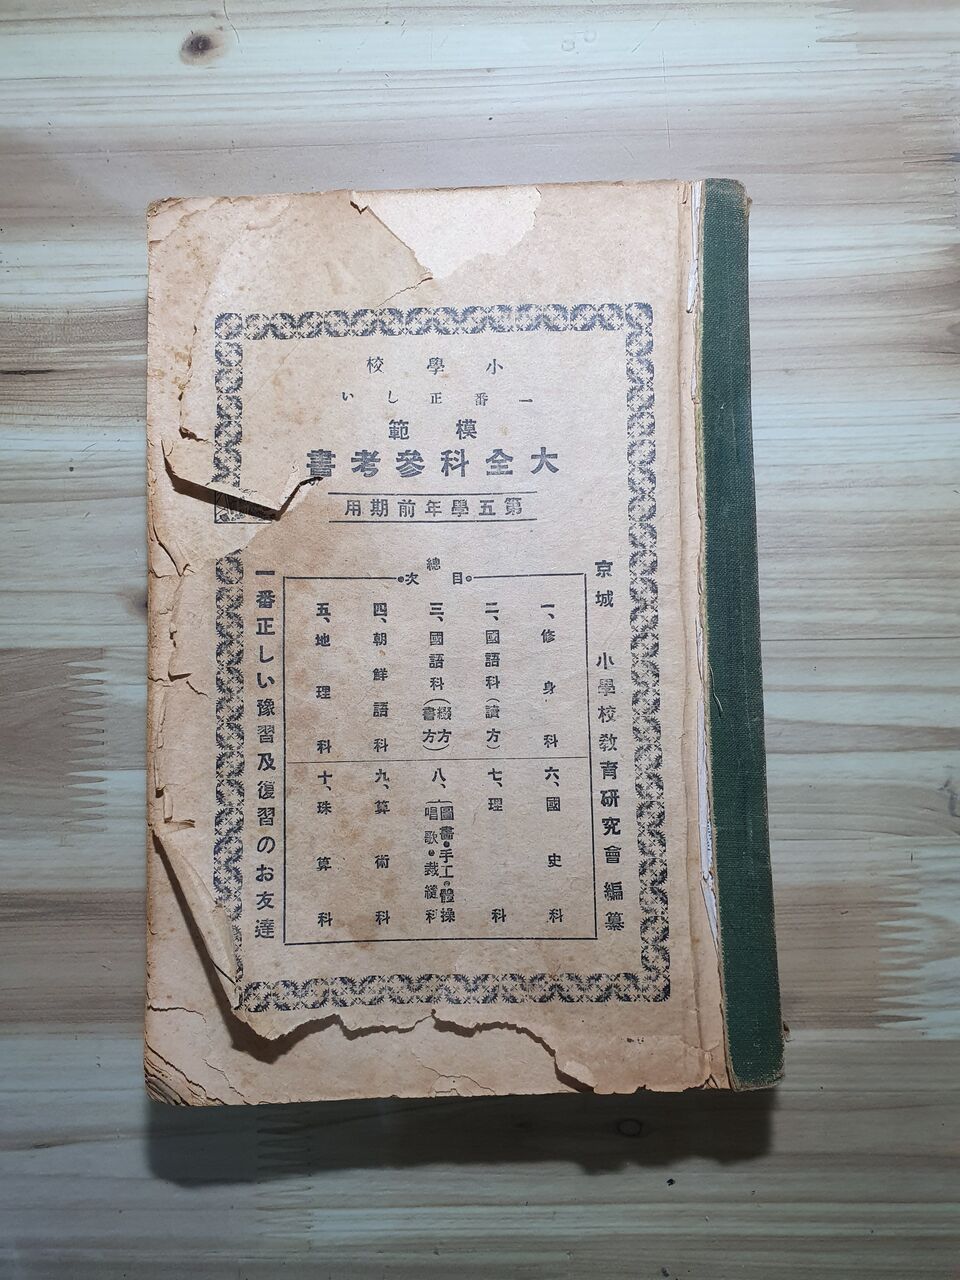 小學校
一番正しい
模範
大全科參考書
第五學年前期用
京城 小學校敎育研究會編纂
總目次
一、修身科
二、國語科(讀方)
三、國語科(綴方書方)
四、朝鮮語科
五、地理科
六、國史科
七、理科
八、(圖畵・手工・體操唱歌・裁縫科
九、算術科
十、珠算科
一番正しい豫習及復習のお友達